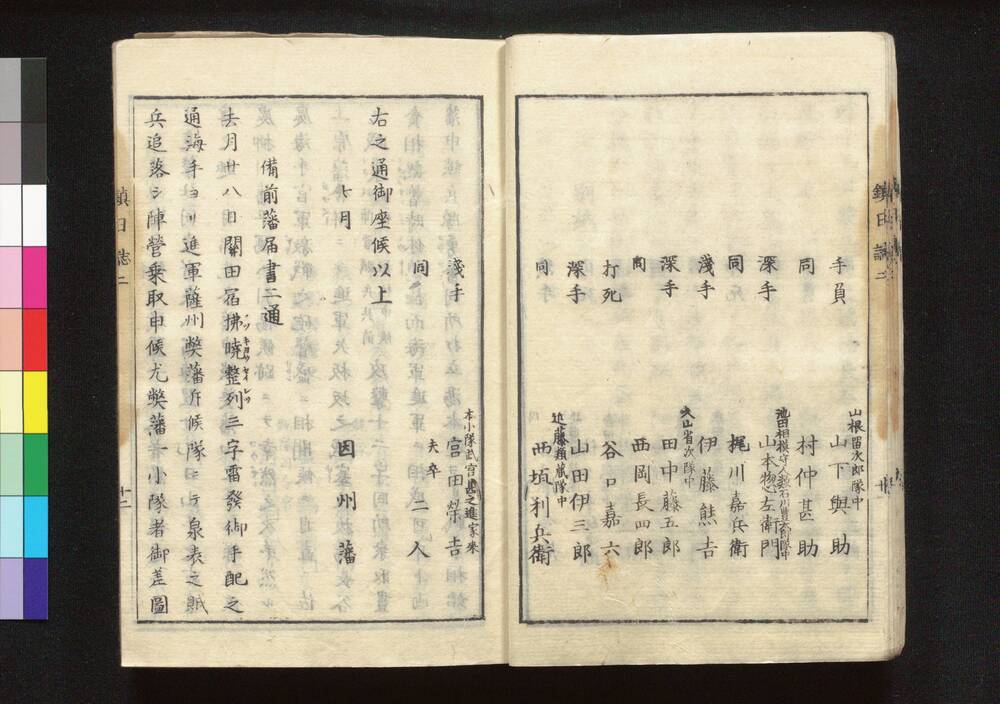 鎮日誌二
山根留次郎隊中
手負 山下與助
同 村仲甚助
池田相模守人数石川豊太郎隊中
深手 山本惣左衛門
同 梶川嘉兵衛
淺手 伊藤熊吉
久山省次隊中
深手 田中藤五郎
同 西岡長四郎
打死 谷口嘉六
深手 山田伊三郎
近藤類蔵隊中
同 西垣利兵衛
本小隊武宮甚之進家来
淺手 宮田榮吉
同 夫卒 二人
右之通御座候以上
七月 因州藩
備前藩届書二通
去月廿八日關田宿拂曉整列三字雷發御手配之
通海手ヨリ進軍薩州弊藩斥候隊ニテ泉表之賊
兵追落シ陣營乗取申候尤弊藩一小隊者御差圖
鎮日誌二
十二